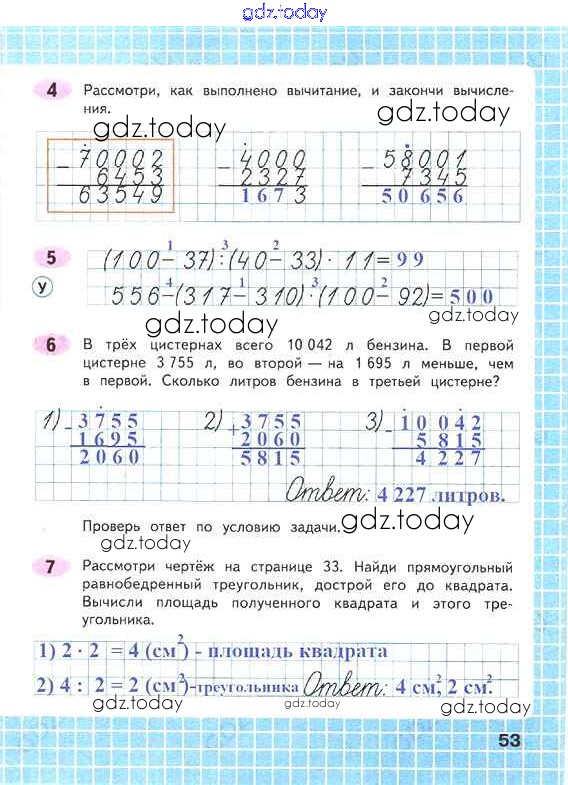 gdz.today
4 Рассмотри, как выполнено вычитание, и закончи вычисле-
ния.
gdz.today gdz.today
- 70002 - 4000 - 58001
6453 2327 7345
63549 1673 50656
1 3 2
5 (100-37):(40-33)·11=99
4 1 3 2
У 556-(317-310)·(100-92)=500
gdz.today
6 В трёх цистернах всего 10 042 л бензина. В первой
цистерне 3 755 л, во второй — на 1 695 л меньше, чем
в первой. Сколько литров бензина в третьей цистерне?
1) - 3755 2) + 3755 3) - 10 042
1695 2060 5815
2060 5815 4227
Ответ: 4 227 литров.
Проверь ответ по условию задачи. gdz.today
gdz.today
7 Рассмотри чертёж на странице 33. Найди прямоугольный
равнобедренный треугольник, дострой его до квадрата.
Вычисли площадь полученного квадрата и этого тре-
угольника.
1) 2 · 2 = 4 (см²) - площадь квадрата
2) 4 : 2 = 2 (см²)-треугольника Ответ: 4 см², 2 см².
gdz.today gdz.today gdz.today
53